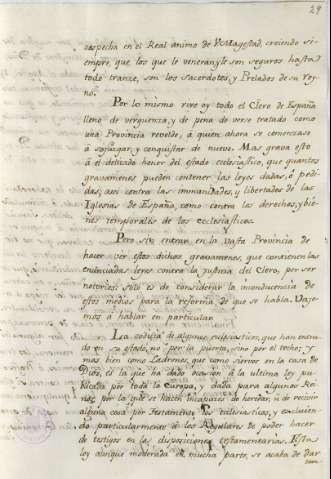 29
sospecha en el Real animo de V. Magestad, creiendo si-
empre, que los que le veneran, y le son seguros hasta
todo tranze, son los Sacerdotes, y Prelados de su Rey-
no.
Por lo mismo vive oy todo el Clero de España
lleno de verguenza, y de pena de verse tratado como
una Provincia revelde, á quien ahora se comenzase
á sojuzgar, y conquistar de nuevo. Mas grava esto
á el delicado honor del estado eclesiastico, que quantos
gravamenes pueden contener las leyes dadas, ó pedi-
das, assi contra las immunidades, y libertades de las
Iglesias de España, como contra los derechos, y bie-
nes temporales de los eclesiasticos.
Pero sin entrar en la vasta Provincia de
hacer ver estos dichos gravamenes, que contienen las
enunciadas leyes contra la Justicia del Clero, por ser
notorios: solo es de considerar la inconducencia de
estos medios para la reforma de que se habla. Vaja-
mos á hablar en particular.
La codicia de algunos eclesiasticos, que han entra-
do en su estado, no por la puerta, sino por el techo; y
mas bien como Ladrones, que como siervos en la casa de
Dios, es la que ha dado ocasion á la ultima ley pu-
blicada por toda la Europa, y dada para algunos Rei-
nos, por la que se hacen incapaces de heredar, ni de recivir
alguna cosa por testamento, los eclesiasticos, y excluien-
do particularmente de los Regulares de poder hacer
de testigos en las disposiciones testamentarias. Esta
ley aunque moderada en mucha parte, se acaba de dar